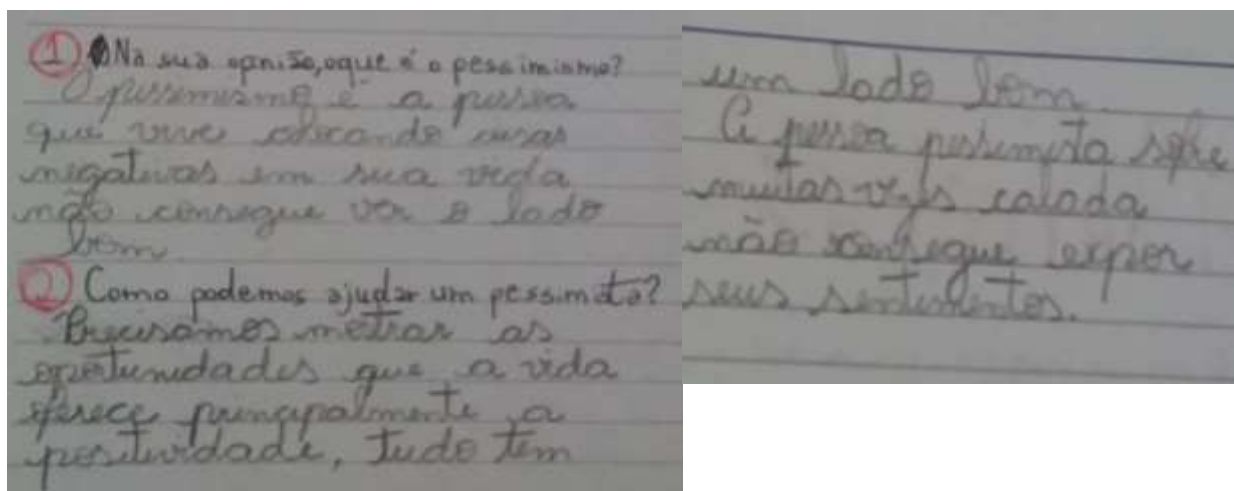 ① Na sua opnisão, oque é o pessimismo?
O pessimismo é a pessoa
que vive colocando coisas
negativas em sua vida
não consegue ver o lado
bom.
② Como podemos ajudar um pessimista?
Precisamos mostrar as
oportunidades que a vida
oferece principalmente a
positividade, tudo tem
um lado bom.
A pessoa pessimista sofre
muitas vezes calada
não consegue expor
seus sentimentos.